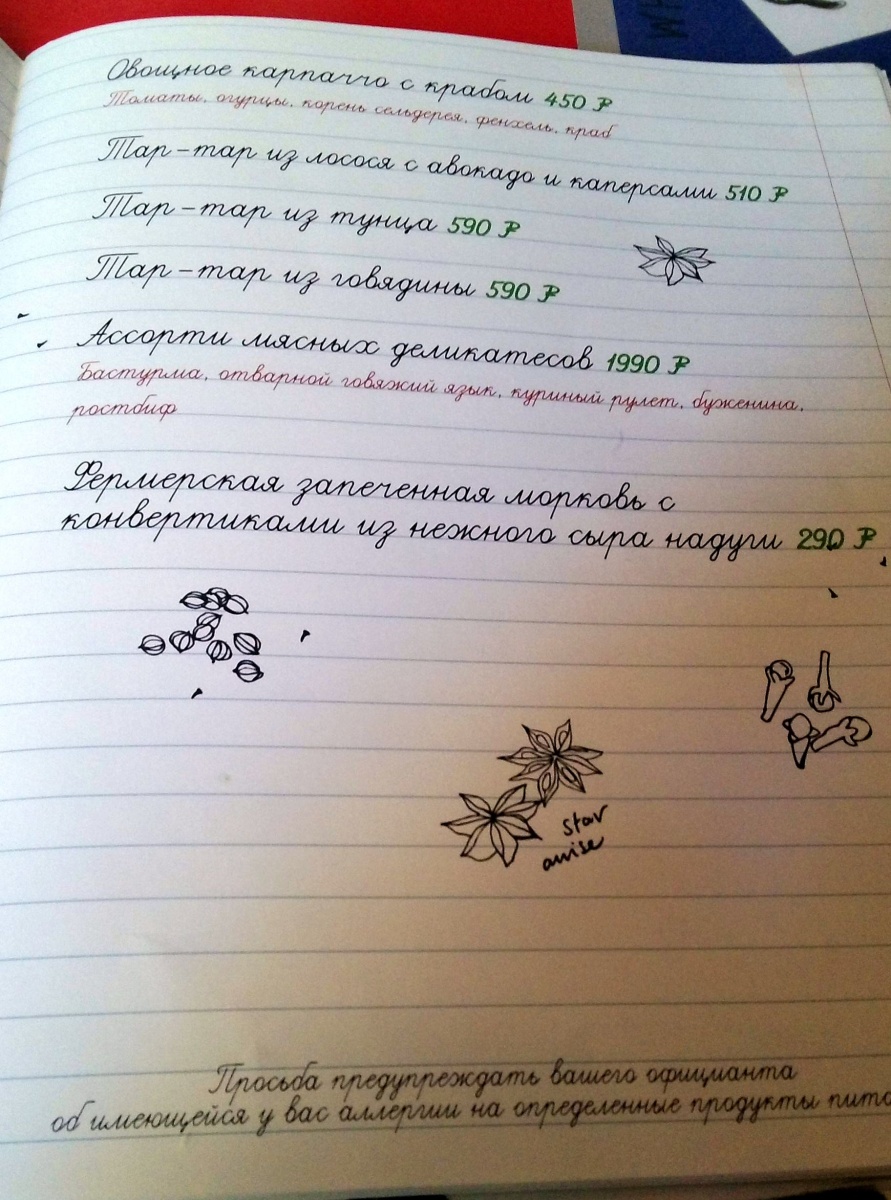 Овощное карпаччо с крабом 450 ₽
Томаты, огурцы, корень сельдерея, фенхель, краб
Тар-тар из лосося с авокадо и каперсами 510 ₽
Тар-тар из тунца 590 ₽
Тар-тар из говядины 590 ₽
Ассорти мясных деликатесов 1990 ₽
Бастурма, отварной говяжий язык, куриный рулет, буженина,
ростбиф
Фермерская запеченная морковь с
конвертиками из нежного сыра надуги 290 ₽
star
anise
Просьба предупреждать вашего официанта
об имеющейся у вас аллергии на определенные продукты